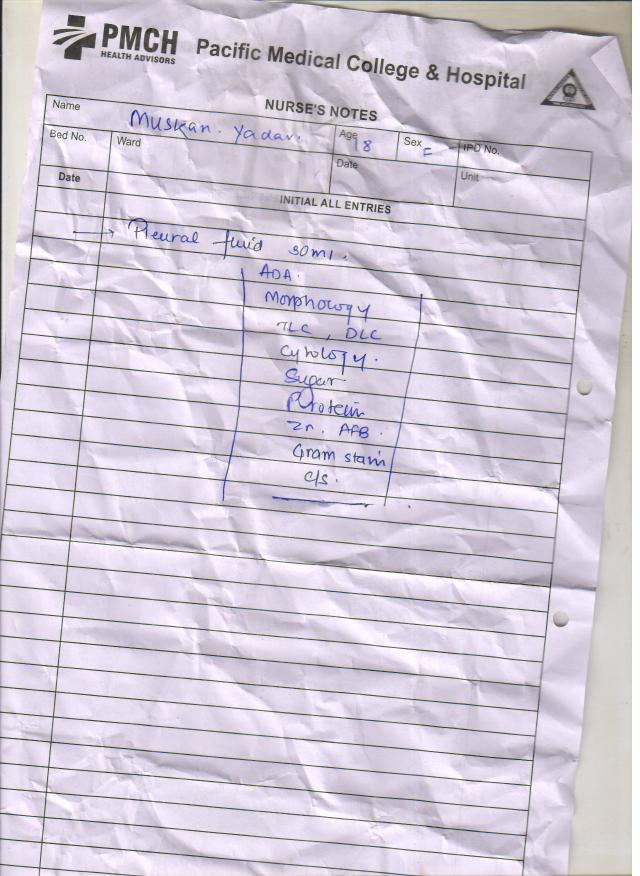 PMCH
HEALTH ADVISORS
Pacific Medical College & Hospital
NURSE'S NOTES
Name Muskan. Yadav. Age 18 Sex F IPD No.
Bed No. Ward Date Unit
Date INITIAL ALL ENTRIES
→ Pleural fluid 30ml.
ADA.
Morphology
TLC, DLC
Cytology.
Sugar
Protein
Zn. AFB.
Gram stain
C/S.